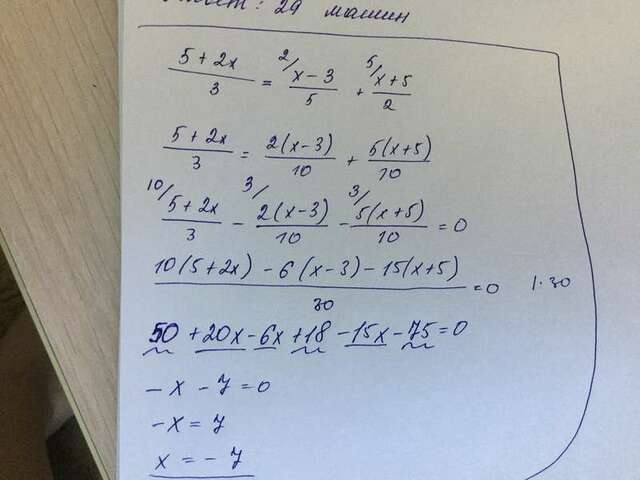 : 29 машин
5 + 2x / 3 = 2/ x - 3 / 5 + 5/ x + 5 / 2
5 + 2x / 3 = 2(x - 3) / 10 + 5(x + 5) / 10
10/ 5 + 2x / 3 - 3/ 2(x - 3) / 10 - 3/ 5(x + 5) / 10 = 0
10(5 + 2x) - 6(x - 3) - 15(x + 5) / 30 = 0 | · 30
50 + 20x - 6x + 18 - 15x - 75 = 0
- x - 7 = 0
- x = 7
x = - 7